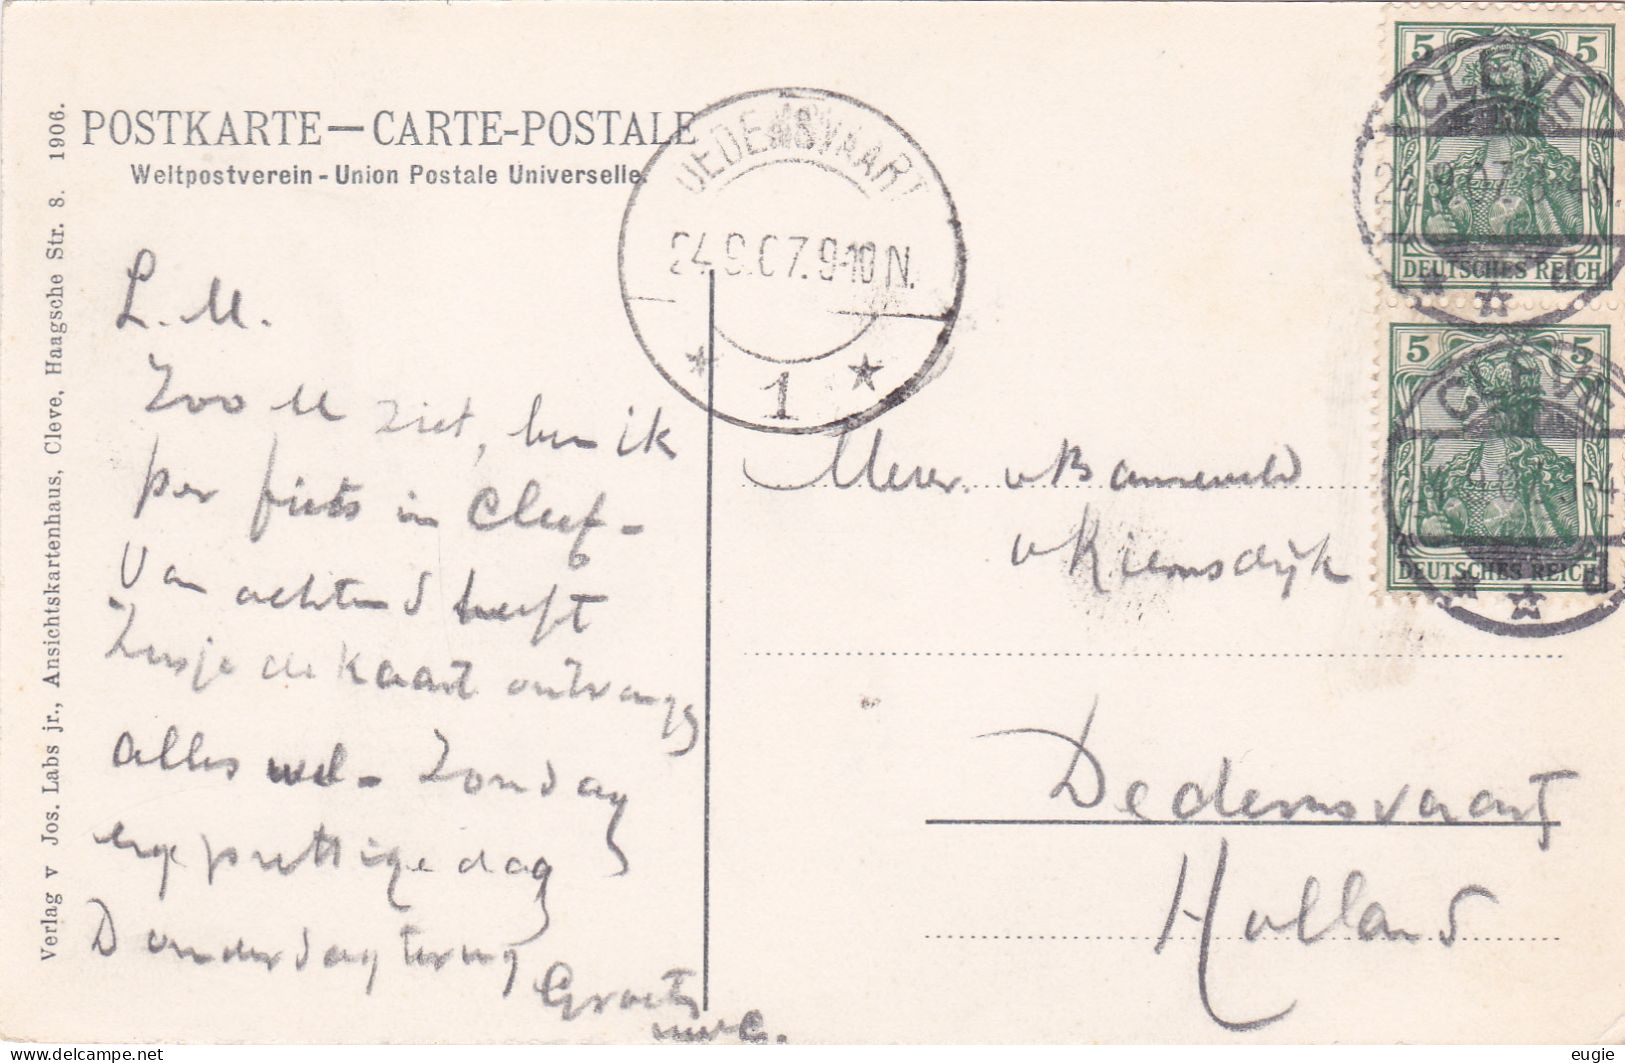 Verlag v Jos. Labs jr., Ansichtskartenhaus, Cleve, Haagsche Str. 8. 1906.
POSTKARTE — CARTE-POSTALE
Weltpostverein - Union Postale Universelle.
L. M.
Zoo U ziet, ben ik
per fiets in Cleef -
Van ochtend heeft
Zusje de kaart ontvangen
alles wel - Zondag
erg prettige dag
Donderdag terug
Groeten
DEDEMSVAART
24 9.07. 9-10 N.
1
Mevr. v Barneveld
v Riemsdijk
Dedemsvaart
Holland
5 5
CLEVE
24.9.07.
DEUTSCHES REICH
5 5
CLEVE
DEUTSCHES REICH
eugie
delcampe.net